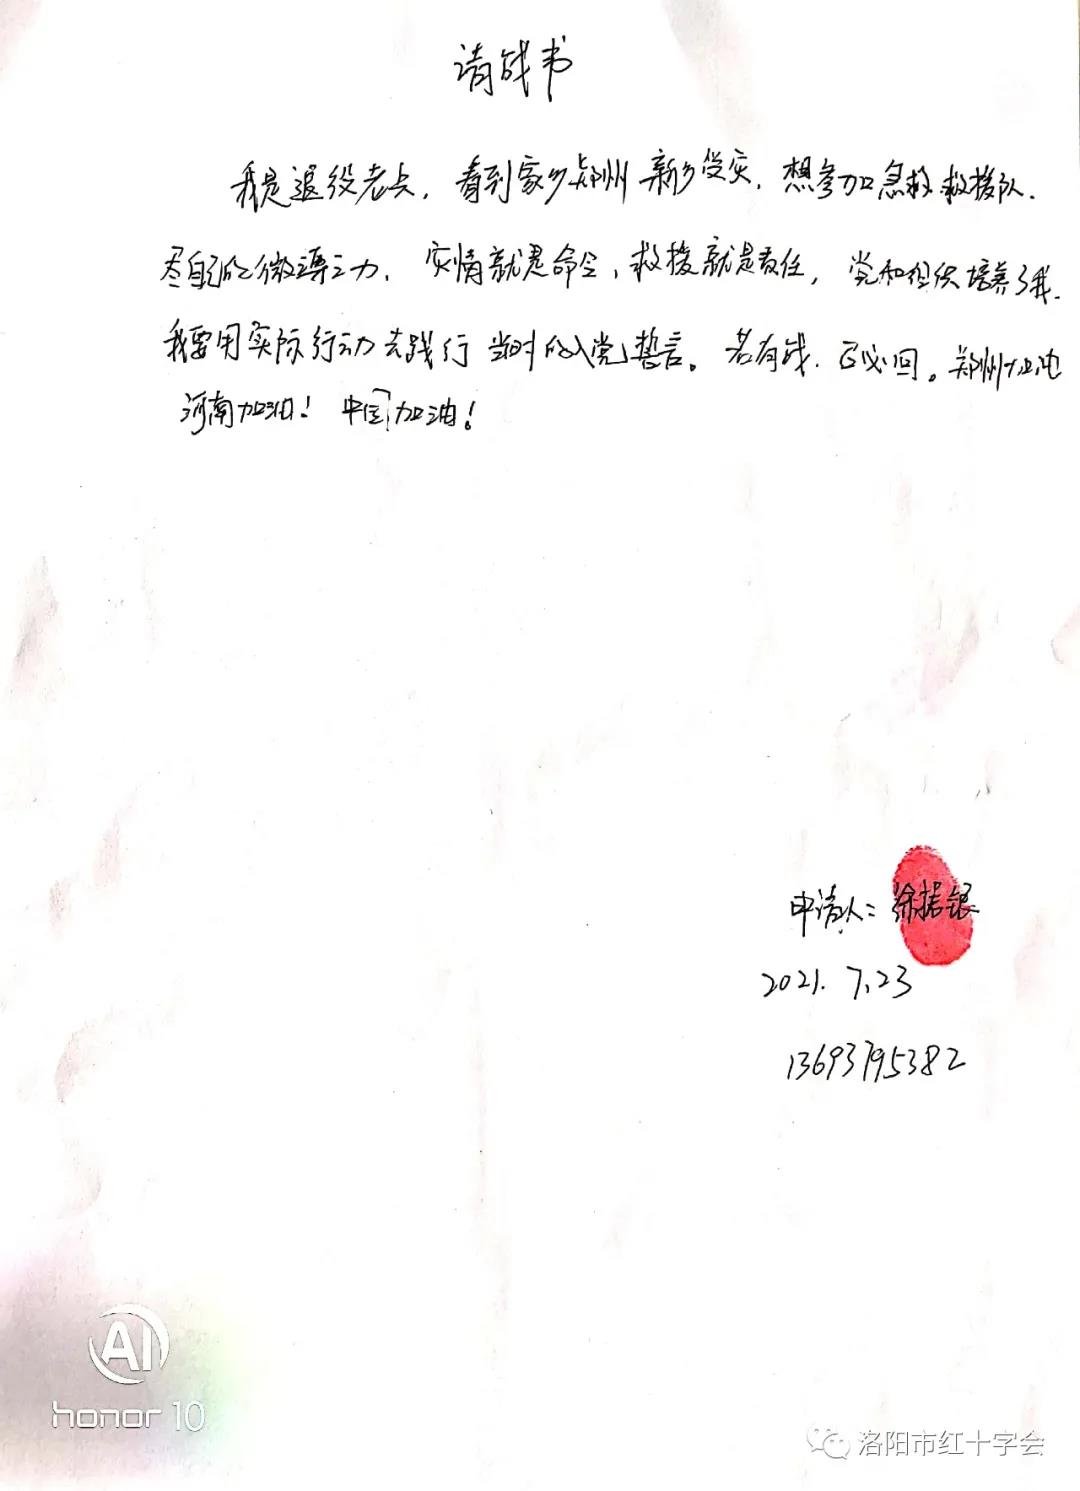 请战书
我是退役老兵，看到家乡郑州新乡受灾，想参加急救救援队.
尽自己的微薄之力，灾情就是命令，救援就是责任，党和组织培养了我.
我要用实际行动去践行当时的入党誓言。若有战.召必回。郑州加油
河南加油！中国加油！
申请人：徐 银
2021.7.23
13693795382
AI
honor 10
洛阳市红十字会